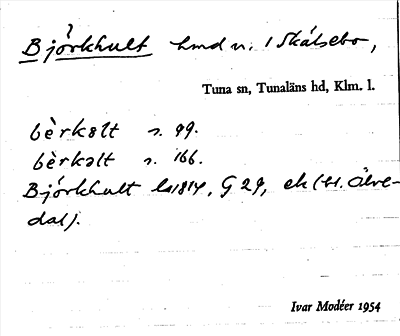 Bjórkhult hmd n. 1 Skälsebo,
Tuna sn, Tunaläns hd, Klm. l.
bèrkølt s. 99.
bèrkəlt s. 166.
Björkhult ls1814, G 29, ek (bl. Älve-
dal).
Ivar Modéer 1954